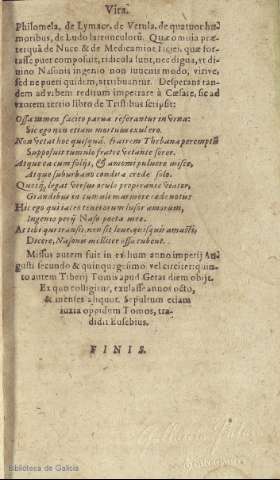 Vita.
Philomela, de Lymace, de Vetula, de quatuor hu-
moribus, de Ludo latrunculorū. Quæ omnia præ-
terquā de Nuce & de Medicamine faciei, quæ for-
tasse puer composuit, ridicula sunt, nec digna, vt di-
uino Nasonis ingenio non iuuenis modo, virive,
sed ne pueri quidem, attribuantur. Desperans tan-
dem ad vrbem reditum impetrare à Cæsare, sic ad
vxorem tertio libro de Tristibus scripsit:
Ossa tamen facito parua referantur in vrna:
Sic ego non etiam mortuus exul ero.
Non vetat hoc quisquā. fratrem Thebana peremptū
Supposuit tumulo fratre vetante soror.
Atque ea cum folijs, & amomi puluere misce,
Atque suburbano condita crede solo.
Quosq; legat versus oculo properante viator,
Grandibus in tumuli marmore cæde notis
Hic ego qui iaceo tenerorum lusor amorum,
Ingenio perij Naso poeta meo.
At tibi qui transis, non sit graue, quisquis amasti,
Dicere, Nasonis molliter ossa cubent.
Missus autem fuit in exilium anno imperij Au-
gusti secundo & quinquagesimo. vel circiter: quin-
to autem Tiberij Tomis apud Getas diem obijt.
Ex quo colligitur, exulasse annos octo,
& menses aliquot. Sepultum etiam
iuxta oppidum Tomos, tra-
didit Eusebius.
FINIS.
Biblioteca de Galicia